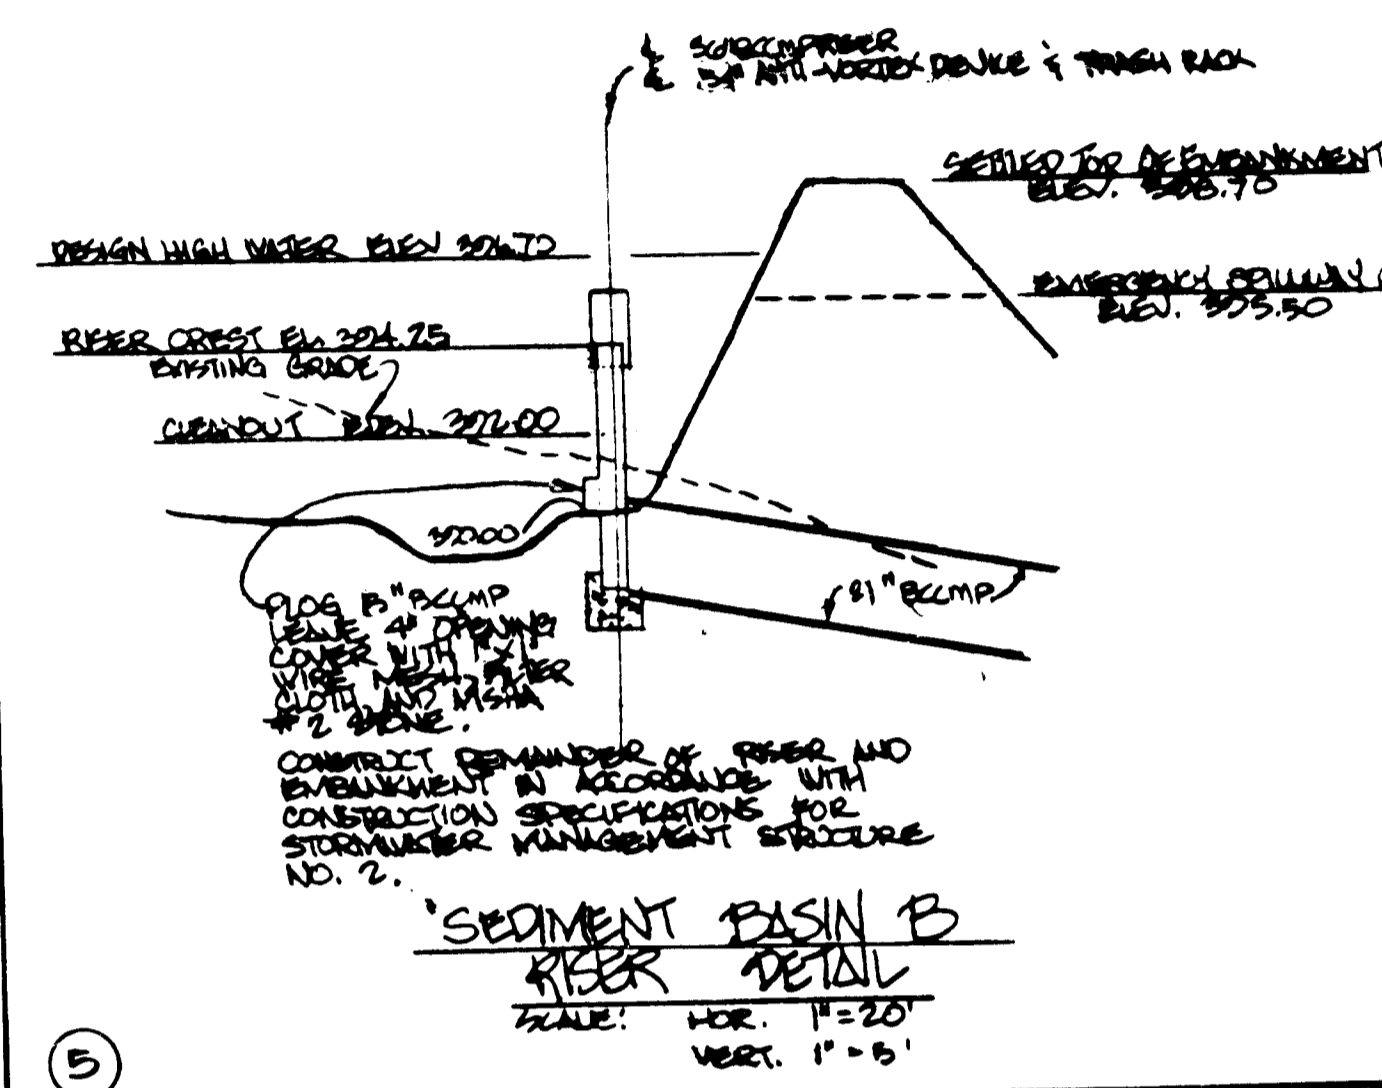 ANTI-VORTEX DEVICE & TRASH RACK
SETTLED TOP OF EMBANKMENT
ELEV. 398.70
DESIGN HIGH WATER ELEV 396.70
EMERGENCY SPILLWAY
ELEV. 395.50
RISER CREST EL. 394.25
EXISTING GRADE
CLEANOUT ELEV. 392.00
390.00
BCCMP
PLUG BCCMP
LEAVE 4" OPENING
COVER WITH 1" X 1"
WIRE MESH, FILTER
CLOTH AND MSHA
# 2 STONE.
CONSTRUCT REMAINDER OF RISER AND
EMBANKMENT IN ACCORDANCE WITH
CONSTRUCTION SPECIFICATIONS FOR
STORMWATER MANAGEMENT STRUCTURE
NO. 2.
SEDIMENT BASIN B
RISER DETAIL
SCALE: HOR. 1" = 20'
VERT. 1" = 5'
5